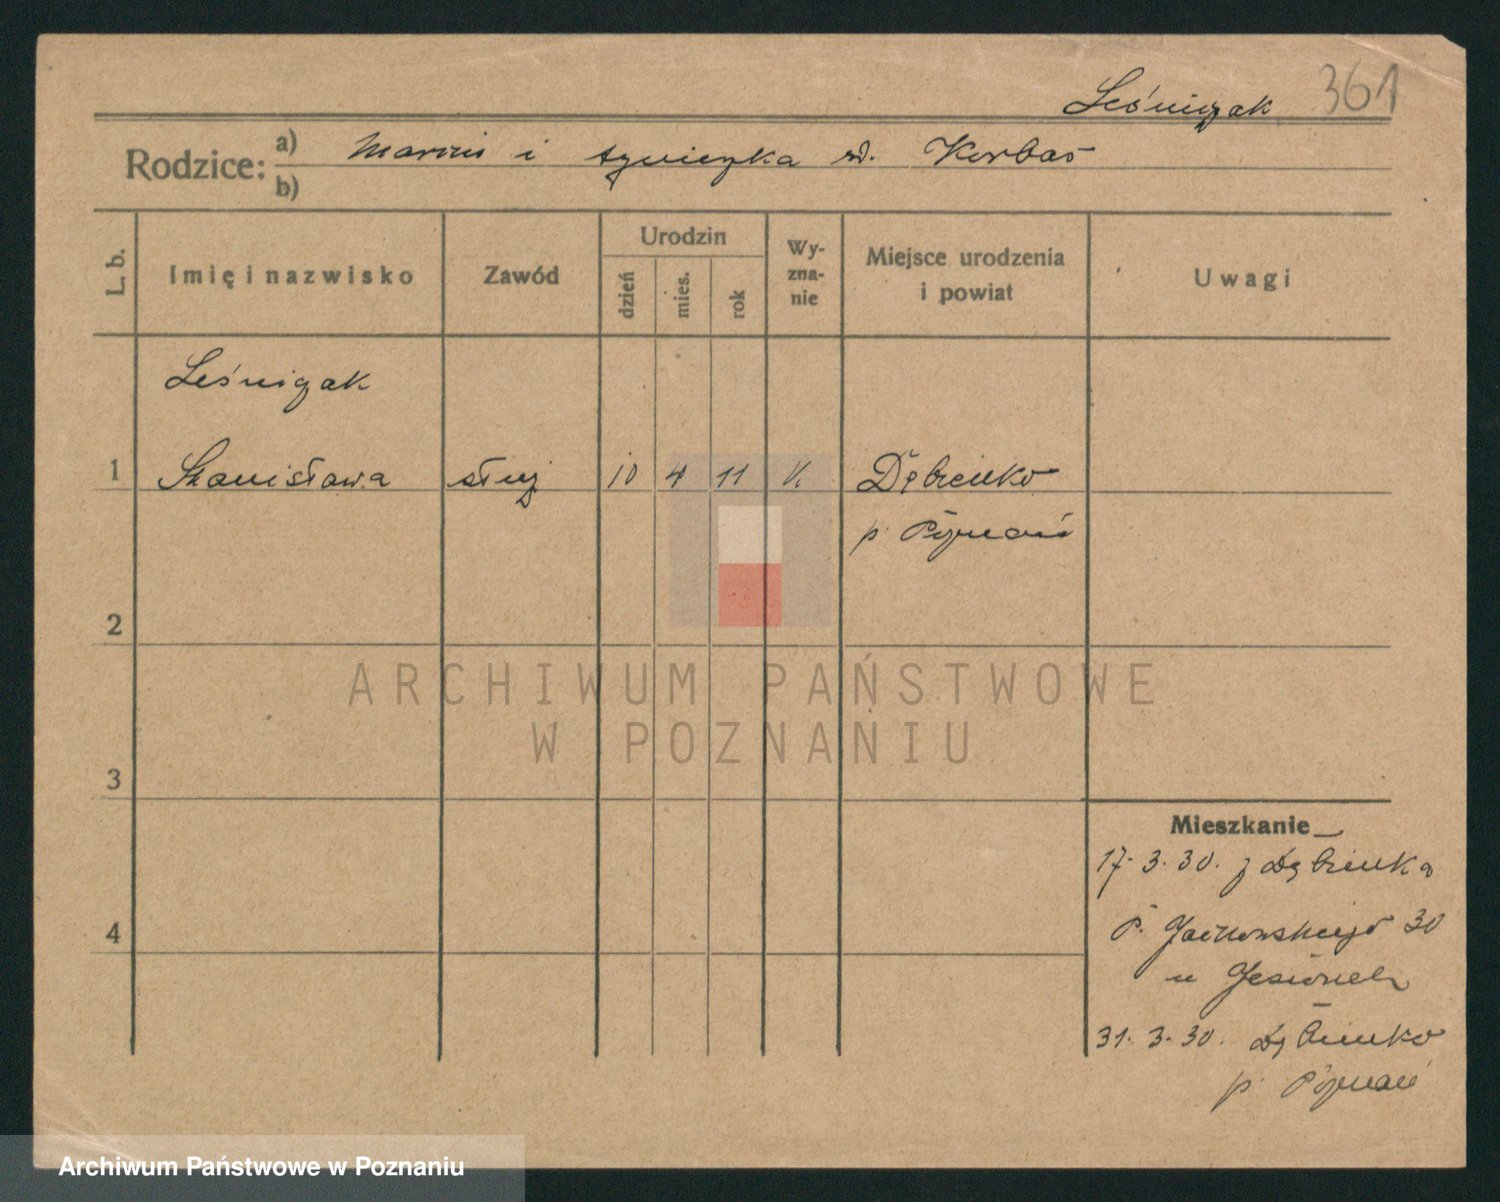 Leśniczak 361
Rodzice: a) Marcin i Agnieszka rd. Korbaś
b)
L. b. Imię i nazwisko Zawód Urodzin dzień mies. rok Wy-zna-nie Miejsce urodzenia i powiat Uwagi
Leśniczak
1 Stanisława służ 10 4 11 k. Dębienko
p. Poznań
2
ARCHIWUM PAŃSTWOWE
W POZNANIU
3
Mieszkanie
17. 3. 30. z Dębienka
4
P. Jackowskiego 30
u
31. 3. 30. Dębienko
p. Poznań
Archiwum Państwowe w Poznaniu